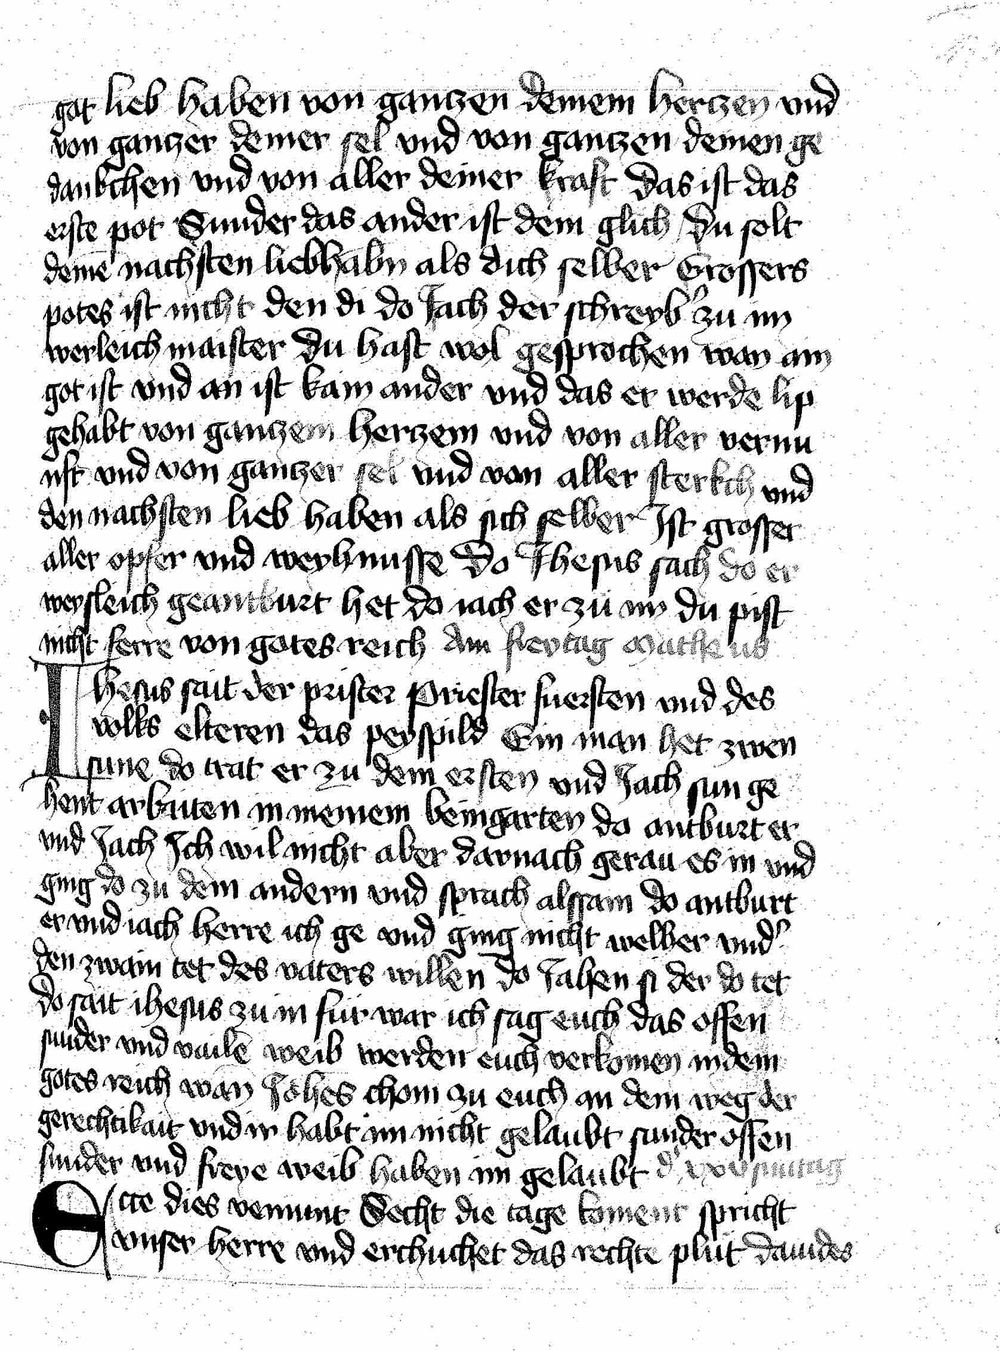 got lieb haben von gantzen deinem hertzen vnd
von gantzer deiner sel vnd von gantzen deinen ge
dankchen vnd von aller deiner kraft Das ist das
erste pot Sunder das ander ist dem glich Du solt
deinē nachsten liebhabn als dich selber Grossers
potes ist nicht den di do Jach der schreyb' zu im
werleich maister Du hast wol gesprochen wan ain
got ist vnd an ist kain ander vnd das er werde lip
gehabt von gantzem hertzem vnd von aller vernu
nft vnd von gantzer sel vnd von aller sterkch vnd
den nachsten lieb haben als sich selber Ist grosser
aller opfer vnd weyhnusse Do Jhesus sach do er
weysleich geantburt het do iach er zu im du pist
nicht ferre von gotes reich Am freytag Matheus
Jhesus sait der prister Priester fuersten vnd des
volks elteren das peyspild Ein man het zwen
sune do trat er zu dem ersten vnd Jach sun ge
hent arbaiten in meinem beingarten do antburt er
vnd Jach Ich wil nicht aber darnach gerau es in vnd
ging do zu dem andern vnd sprach alssam do antburt
er vnd iach herre ich ge vnd ging nicht welher vnd'
den zwain tet des vaters willen do Jahen si der do tet
do sait ihesus zu in für war ich sag euch das offen
sunder vnd vailē weib werden euch verkomen in dem
gotes reich wan Johēs chom zu euch an dem weg der
gerechtikait vnd ir habt im nicht gelaubt sunder offen
sunder vnd freye weib haben im gelaubt d' xxv suntag
Ecce dies veniunt Secht die tage koment spricht
vnser herre vnd erchuchet das rechte plut dauides